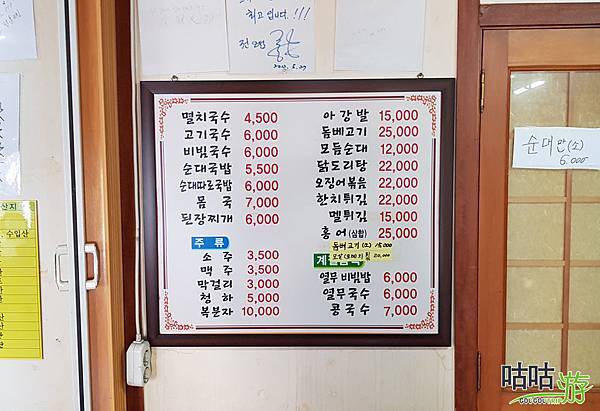 최고입니다.!!!
멸치국수 4,500
고기국수 6,000
비빔국수 6,000
순대국밥 5,500
순대따로국밥 6,000
몸국 7,000
된장찌개 6,000
주류
소주 3,500
맥주 3,500
막걸리 3,000
청하 5,000
복분자 10,000
아강발 15,000
돔베고기 25,000
모듬순대 12,000
닭도리탕 22,000
오징어볶음 22,000
한치튀김 22,000
멜튀김 15,000
홍어(삼합) 25,000
돔베고기 (소) 15,000
20,000
열무비빔밥 6,000
열무국수 6,000
콩국수 7,000
순대만(소)
6.000
산지
수입산
咕咕游
GUCGUTRIP